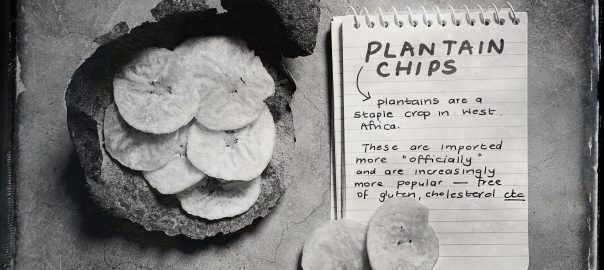 PLANTAIN
CHIPS
plantains are a
staple crop in West
Africa.
These are imported
more "officially"
and are increasingly
more popular — free
of gluten, cholesterol etc